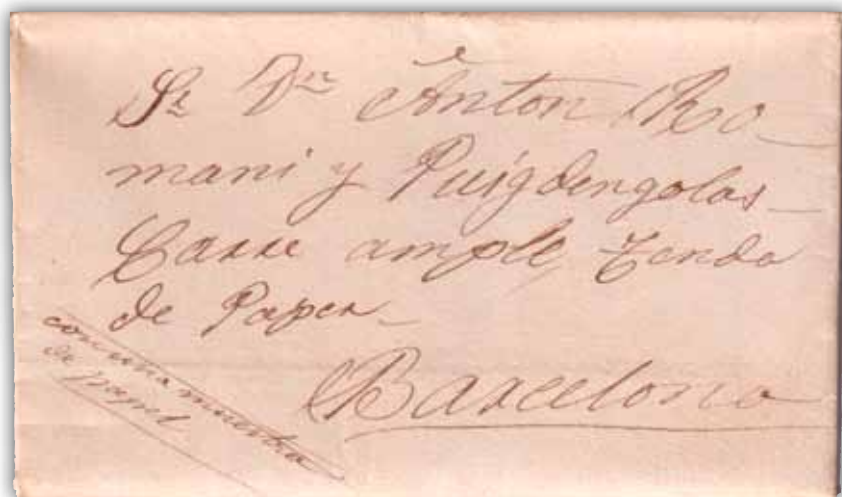 Sr Dn Anton Ro-
mani y Puigdengolas_
Carre ample, Tenda
de Paper_
Barcelona
con una muestra
de papel